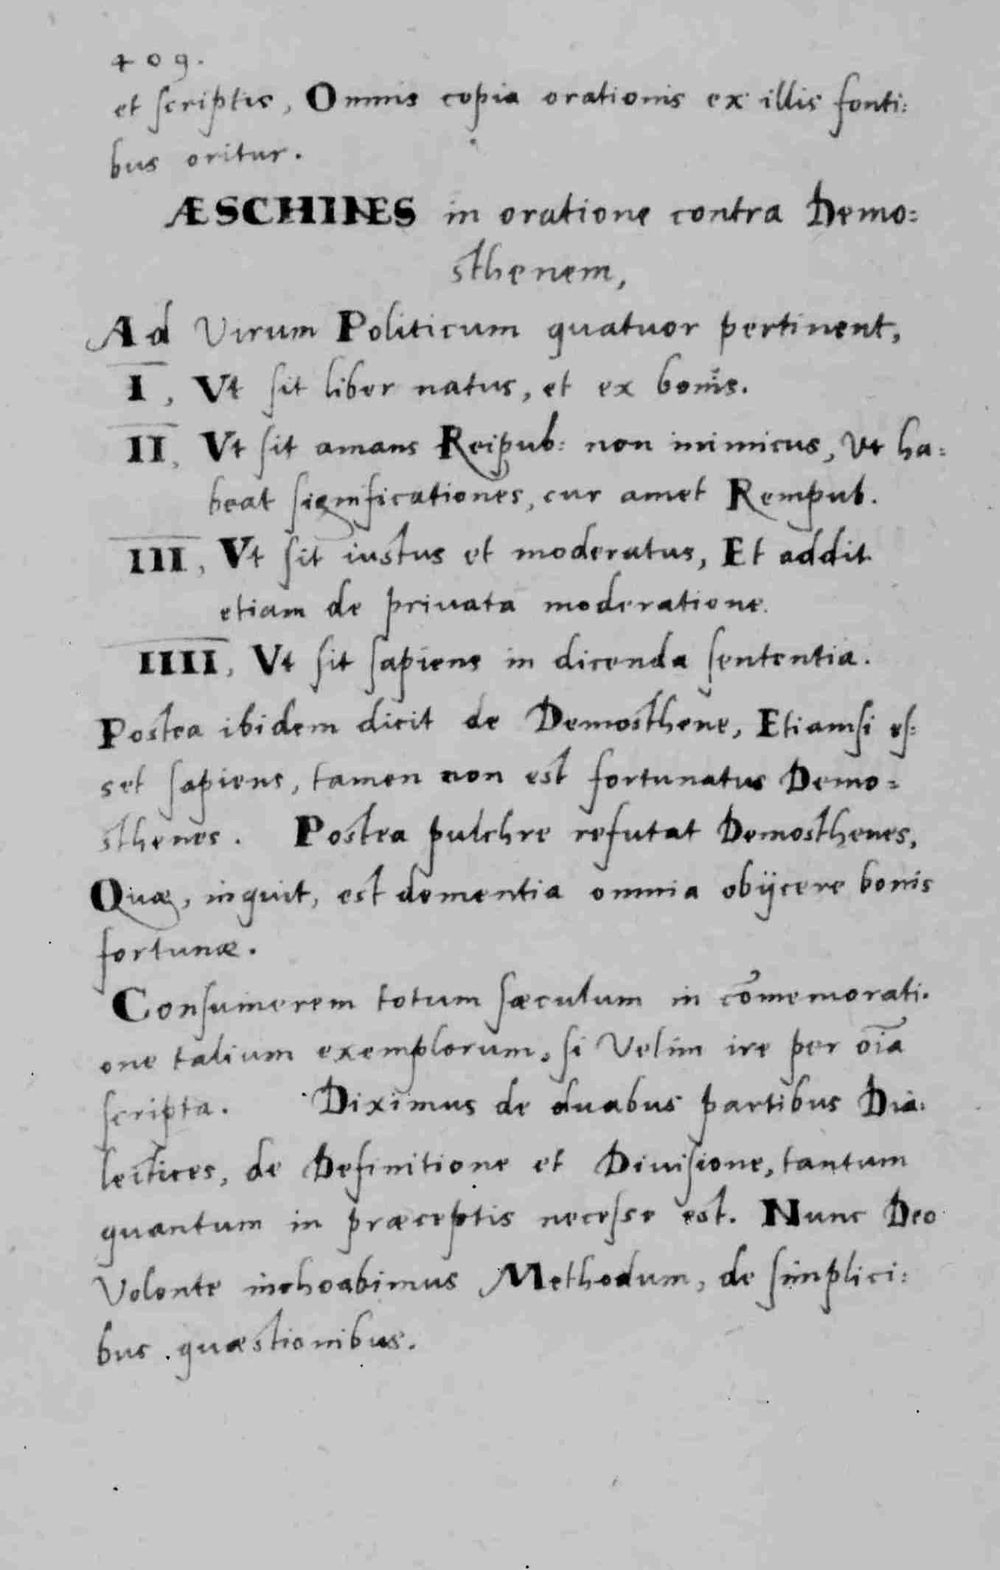 409.
et scriptis, Omnis copia orationis ex illis fonti:
bus oritur.
ÆSCHINES in oratione contra Demo:
sthenem,
Ad Virum Politicum quatuor pertinent,
I, Vt sit liber natus, et ex bonis.
II, Vt sit amans Reipub: non inimicus, Vt ha:
beat significationes, cur amet Rempub.
III, Vt sit iustus et moderatus, Et addit
etiam de priuata moderatione.
IIII, Vt sit sapiens in dicenda sententia.
Postea ibidem dicit de Demosthene, Etiamsi es:
set sapiens, tamen non est fortunatus Demo:
sthenes. Postea pulchre refutat Demosthenes,
Quæ, inquit, est dementia omnia obijcere bonis
fortunæ.
Consumerem totum sæculum in cōmemorati:
one talium exemplorum, si Velim ire per oīa
scripta. Diximus de duabus partibus Dia:
lectices, de Definitione et Diuisione, tantum
quantum in præceptis necesse est. Nunc Deo
Volente inchoabimus Methodum, de simplici:
bus quæstionibus.